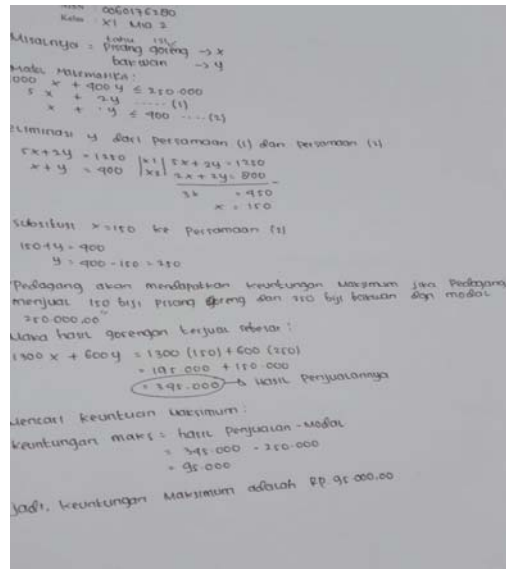 0060176280
Kelas : XI MIO 2
Misalnya = tahu isi
pisang goreng → x
bakwan → y
Model Matematika :
000 x + 400 y ≤ 250.000
5 x + 2y ..... (1)
x + y ≤ 400 .... (2)
eliminasi y dari persamaan (1) dan persamaan (2)
5x + 2y = 1250 |x1| 5x + 2y = 1250
x + y = 400 |x2| 2x + 2y = 800 -
3x = 450
x = 150
substitusi x = 150 ke persamaan (2)
150 + y = 400
y = 400 - 150 = 250
"Pedagang akan mendapatkan keuntungan maksimum jika Pedagang
menjual 150 biji pisang goreng dan 250 biji bakwan dgn modal
250.000,00"
Maka hasil gorengan terjual sebesar :
1300 x + 600 y = 1300 (150) + 600 (250)
= 195.000 + 150.000
= 345.000 → Hasil Penjualannya
Mencari keuntuan Maksimum :
keuntungan maks = hasil penjualan - Modal
= 345.000 - 250.000
= 95.000
Jadi, keuntungan Maksimum adalah Rp. 95.000,00